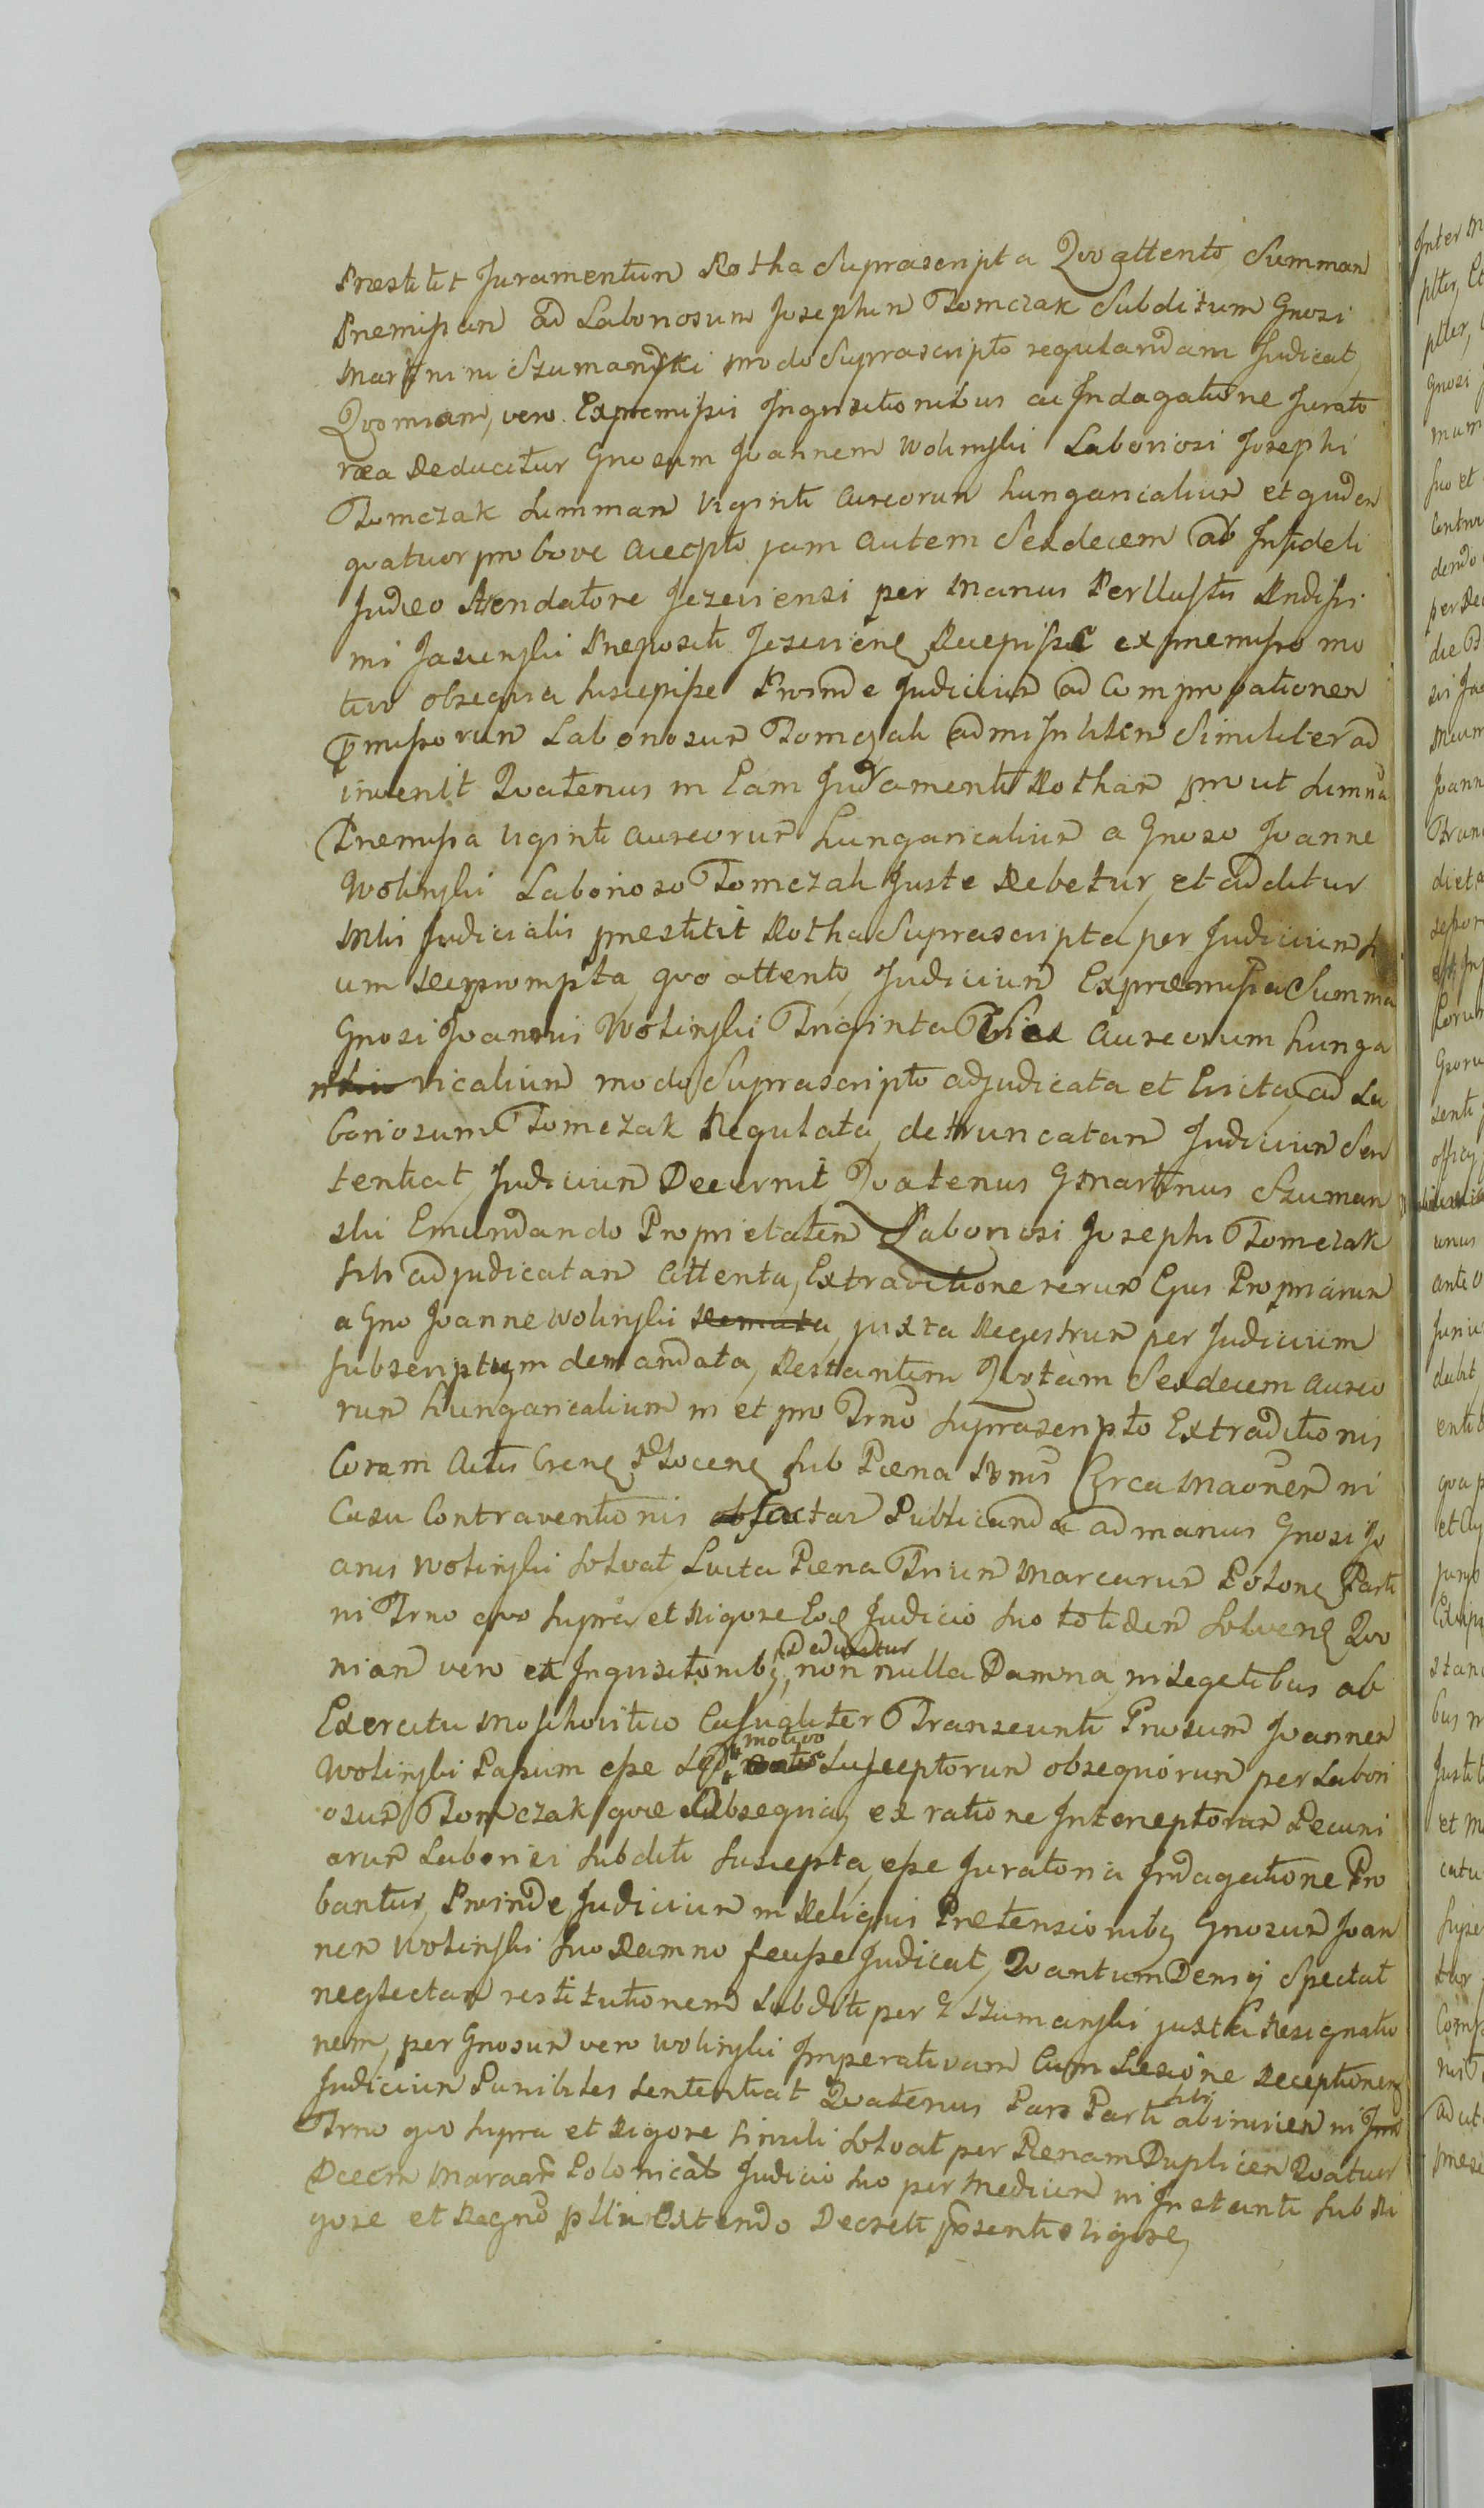 Præstitit Juramentum Rotha Suprascripta Quo attento, Summam
Premissam ad Laboriosum Josephum Tomczak Subditum Gnosi
Martinini Szumanski modo Suprascripto regulandam Judicat,
Quoniam, vero Expremissis Inquisitionibus ac Indagatione Jurato
ræa Deducitur Gnosum Joannem Wolinski Laboriosi Josephi
Tomczak Summam Viginti aureorum hungaricalium et quidem
quatuor pro bove accepto jam autem Sexdecem ab Infideli
Judæo Arendatore Jezeviensi per Manus Perllustris Rndissi
mi Jasienski Prepositi Jezeviens Recepisse expremisso mo
tivo obsequia suscepisse Proinde Judicium ad Comprobationem
Pmissorum Laboriosum Tomczak admisit item Similiter ad
invenit Quatenus in Eam Juramenti Rotham prout Summa
Premissa Viginti aureorum hungaricalium a Gnoso Joanne
Wolinski Laborioso Tomczak Juste Debetur, et additur
Mlis Judicialis prestitit Rotha Suprascripta per Judicium
um deprompta, quo attento, Judicium Expræmissa Summa
Gnosi Joannis Wolinski Triginta Aureorum hunga
ricalium modo Suprascripto adjudicata et Evicta, ad La
boriosum Tomczak Regulata, detruncatam Judicium Sen
tentiat, Judicium Decernit, Quatenus G Martinus Szuman
ski Emundando Proprietatem Laboriosi Josephi Tomczak
sibi adjudicatam attenta, Extraditione rerum Ejus Propriarum
a Gno Joanne Wolinski juxta Regestrum per Judicium
subscriptum demandata, Restantem Quotam Sexdecem aureo
rum hungaricalium in et pro Trno suprascripto Extraditionis
Coram Actis Crens Plocens sub Pæna Circa Maonem in
Casu Contraventionis Publicanda ad manus Gnosi Jo
anis Wolinski solvat, Luita Pæna Trium Marcarum Polons Parti
in Trno quo supra et Rigore Eos Judicio suo totidem solvens Quo
niam vero ex Inquisitionibs, Deducitur non nulla Damna, in Segetibus ab
Exercitu Moschovitico Casualiter Transeunti Gnosum Joannem
Wolinski Passum esse motivo Susceptorum obsequiorum per Labori
osum Tomczak, quæ Obsequia, ex ratione Interceptorum Pecuni
arum Laboriosi subditi suscepta, esse Juratoria Indagatione Pro
bantur, Proinde Judicium in Reliquis Prætensionibs Gnosum Joan
nem Wolinski suo Damno fecisse Judicat, Quantum Demq Spectat
neglectam restitutionem subditi per G Szumanski juxta Resignatio
nem, per Gnosum vero Wolinski Imperativam Cum Læsione Receptionem
Judicium Punibiles sententiat Quatenus Pars Parti sibi abinvicem in
Trno quo supra et Rigore simili solvat per Pænam Duplicem Quatuor
Decem Marcar Polonical Judicio suo per Medium in Instanti sub Ri
gore et Regnō Decreti psentis vigore,